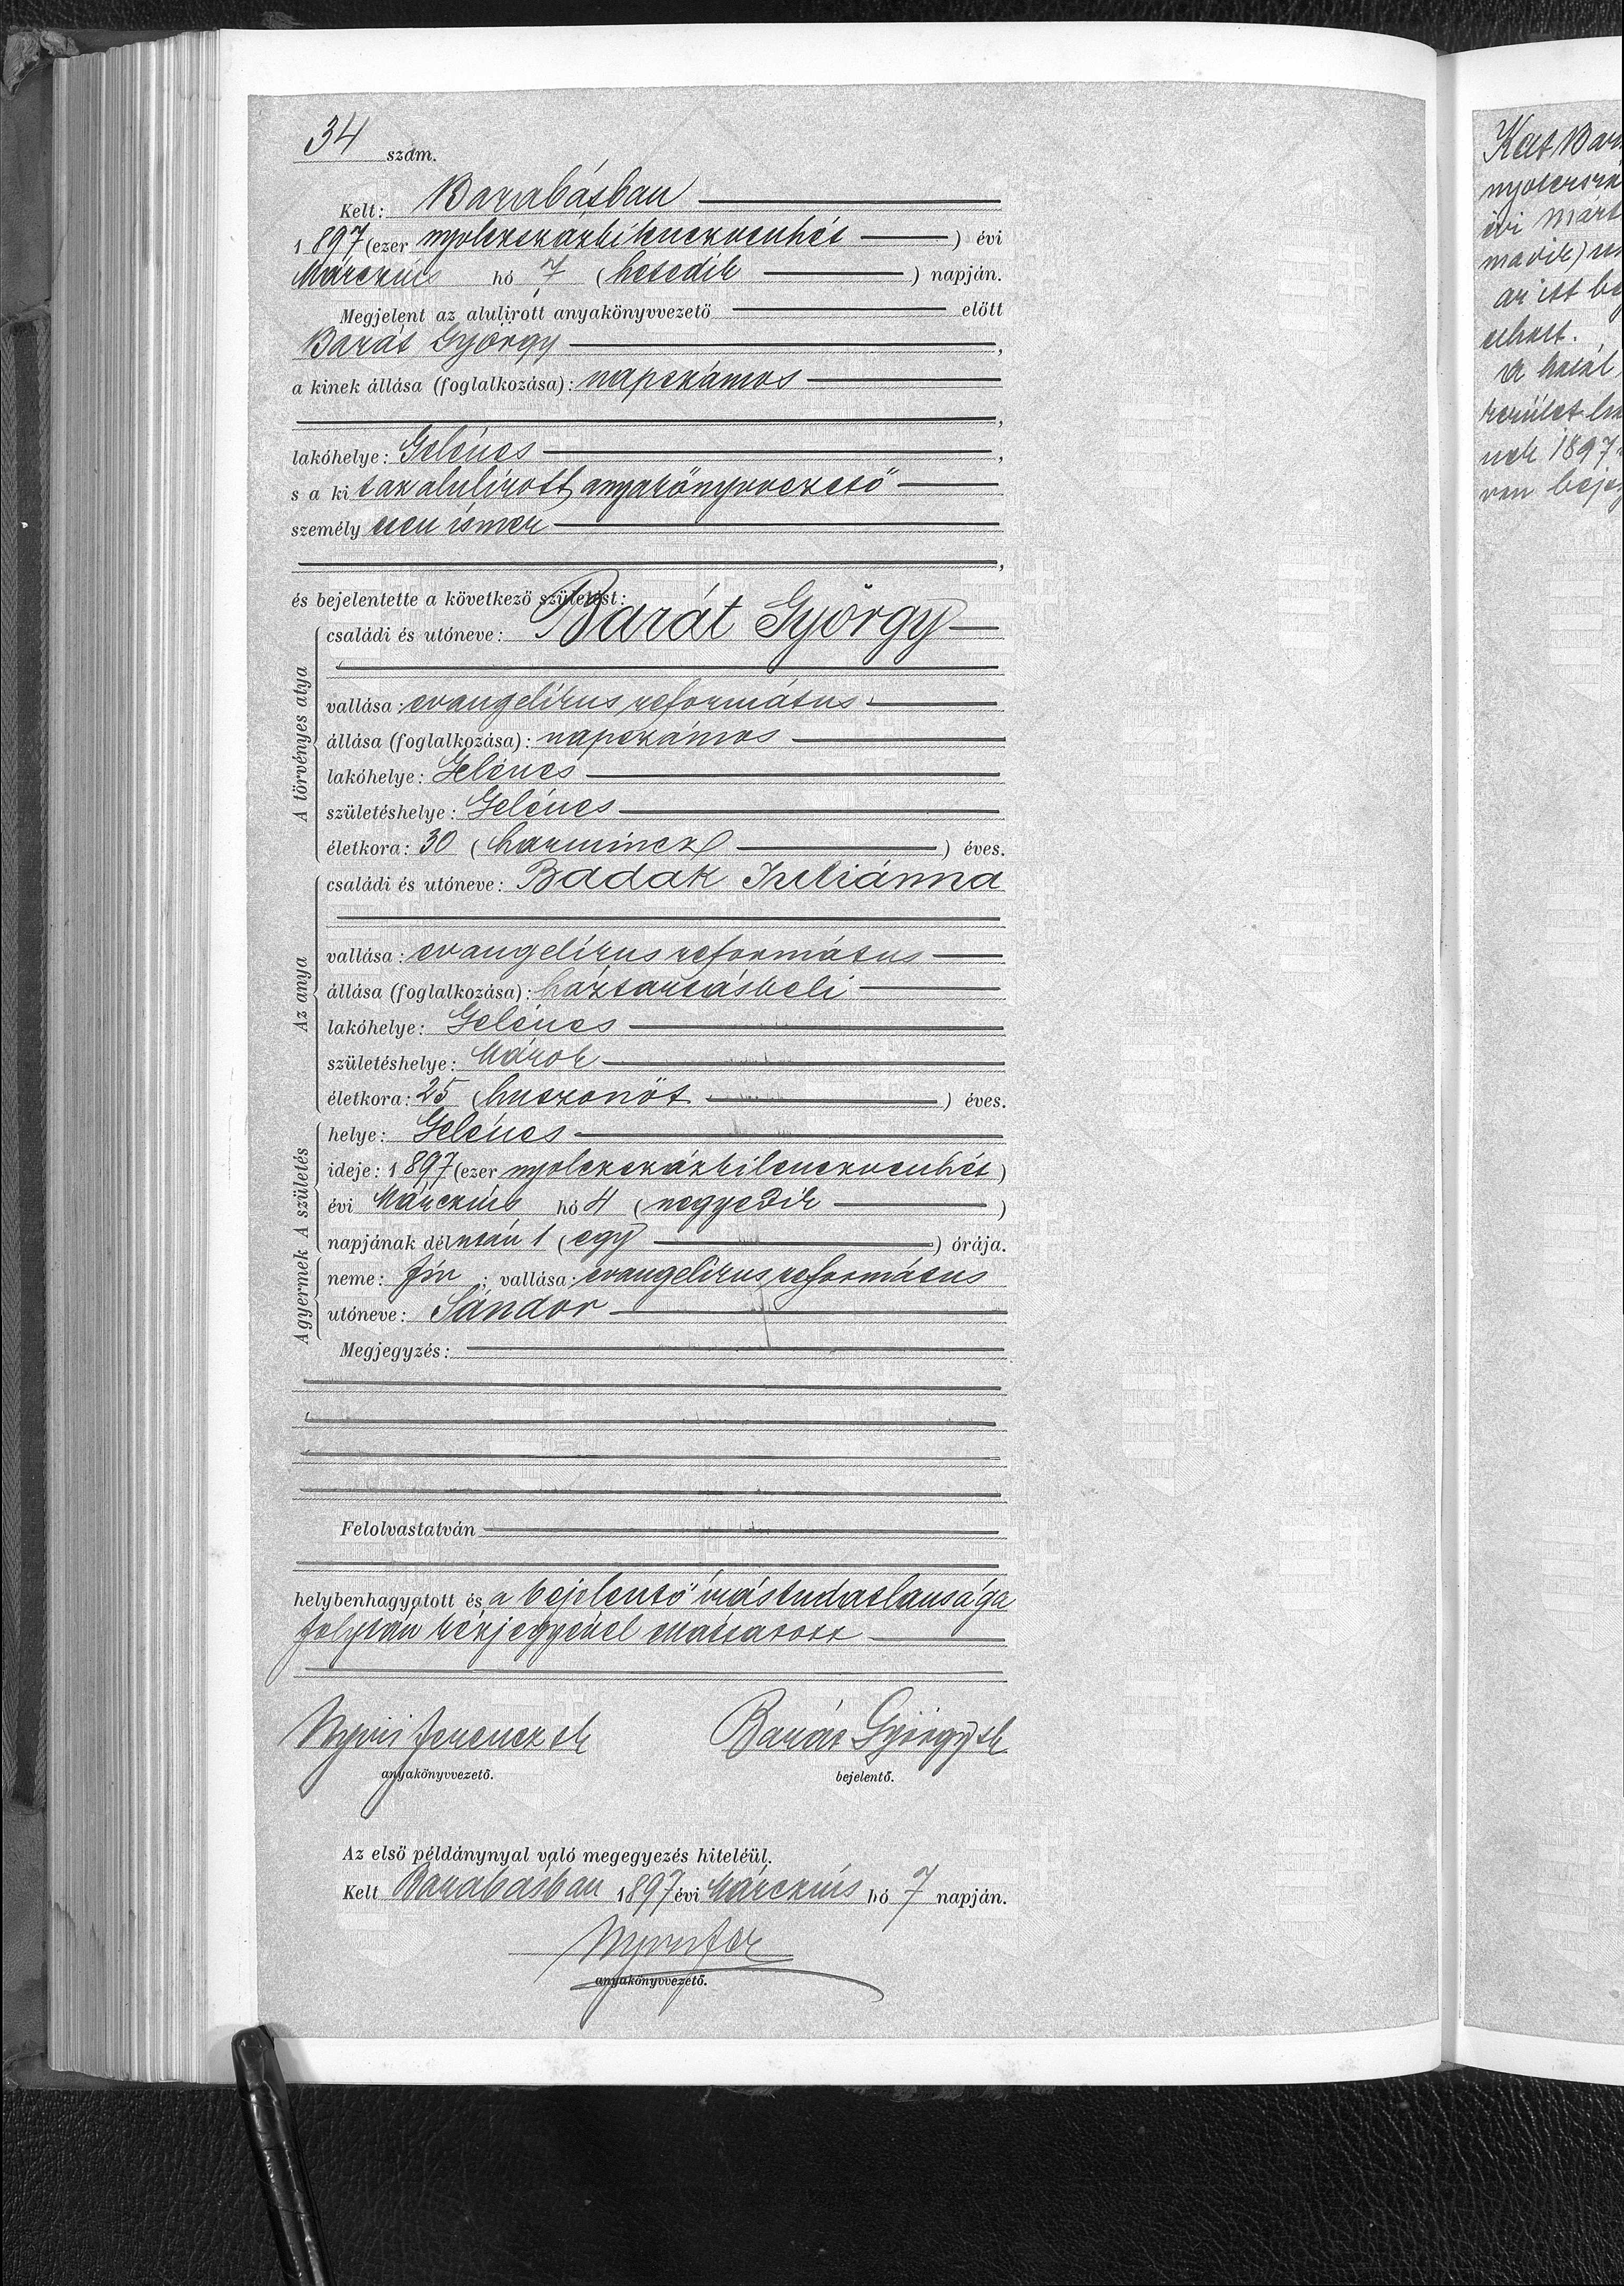 34 szám.
Kelt: Barabásban
1897 (ezer nyolczszázkilenczvenhét) évi
Márczius hó 7 (hetedik) napján.
Megjelent az alulirott anyakönyvvezető előtt
Barát György,
a kinek állása (foglalkozása): napszámos
,
lakóhelye: Gelénes,
s a kit az alulirott anyakönyvvezető
személyesen ismer
,
és bejelentette a következő születést:
A törvényes atya
családi és utóneve: Barát György
vallása: evangelikus református
állása (foglalkozása): napszámos
lakóhelye: Gelénes
születéshelye: Gelénes
életkora: 30 (harmincz) éves.
Az anya
családi és utóneve: Badak Juliánna
vallása: evangelikus református
állása (foglalkozása): háztartásbeli
lakóhelye: Gelénes
születéshelye: Márok
életkora: 25 (huszonöt) éves.
A születés
helye: Gelénes
ideje: 1897 (ezer nyolczszázkilenczvenhét)
évi Márczius hó 4 (negyedik)
napjának délután 1 (egy) órája.
A gyermek
neme: fiu; vallása: evangelikus református
utóneve: Sándor
Megjegyzés:
Felolvastatván
helybenhagyatott és a bejelentő irástudatlansága
folytán kézjegyével elláttatott
Nyiri Ferencz sk Barát György sk
anyakönyvvezető. bejelentő.
Az első példánynyal való megegyezés hiteléül.
Kelt Barabásban 1897 évi Márczius hó 7 napján.
anyakönyvvezető.
Kelt Bar
évi márt
az itt be
elhalt.
A halál
nek 1897
ven beje